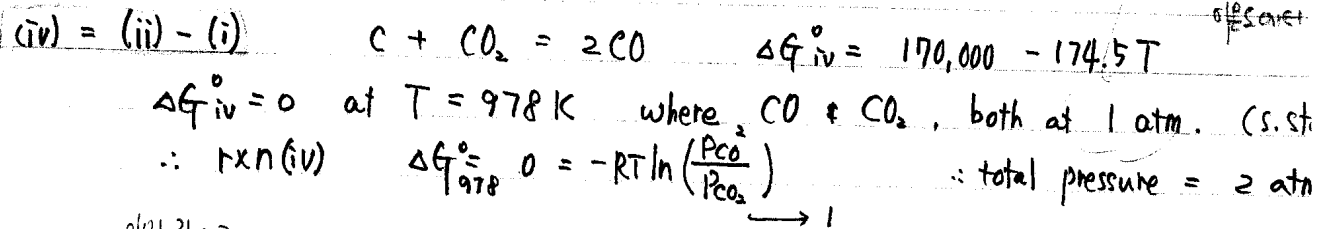 (iv) = (ii) - (i) C + CO₂ = 2CO ΔG°iv = 170,000 - 174.5T
ΔG°iv = 0 at T = 978 K where CO & CO₂, both at 1 atm. (s.st
∴ rxn(iv) ΔG°978 = 0 = -RT ln (P²CO / PCO₂) ∴ total pressure = 2 atm
→ 1